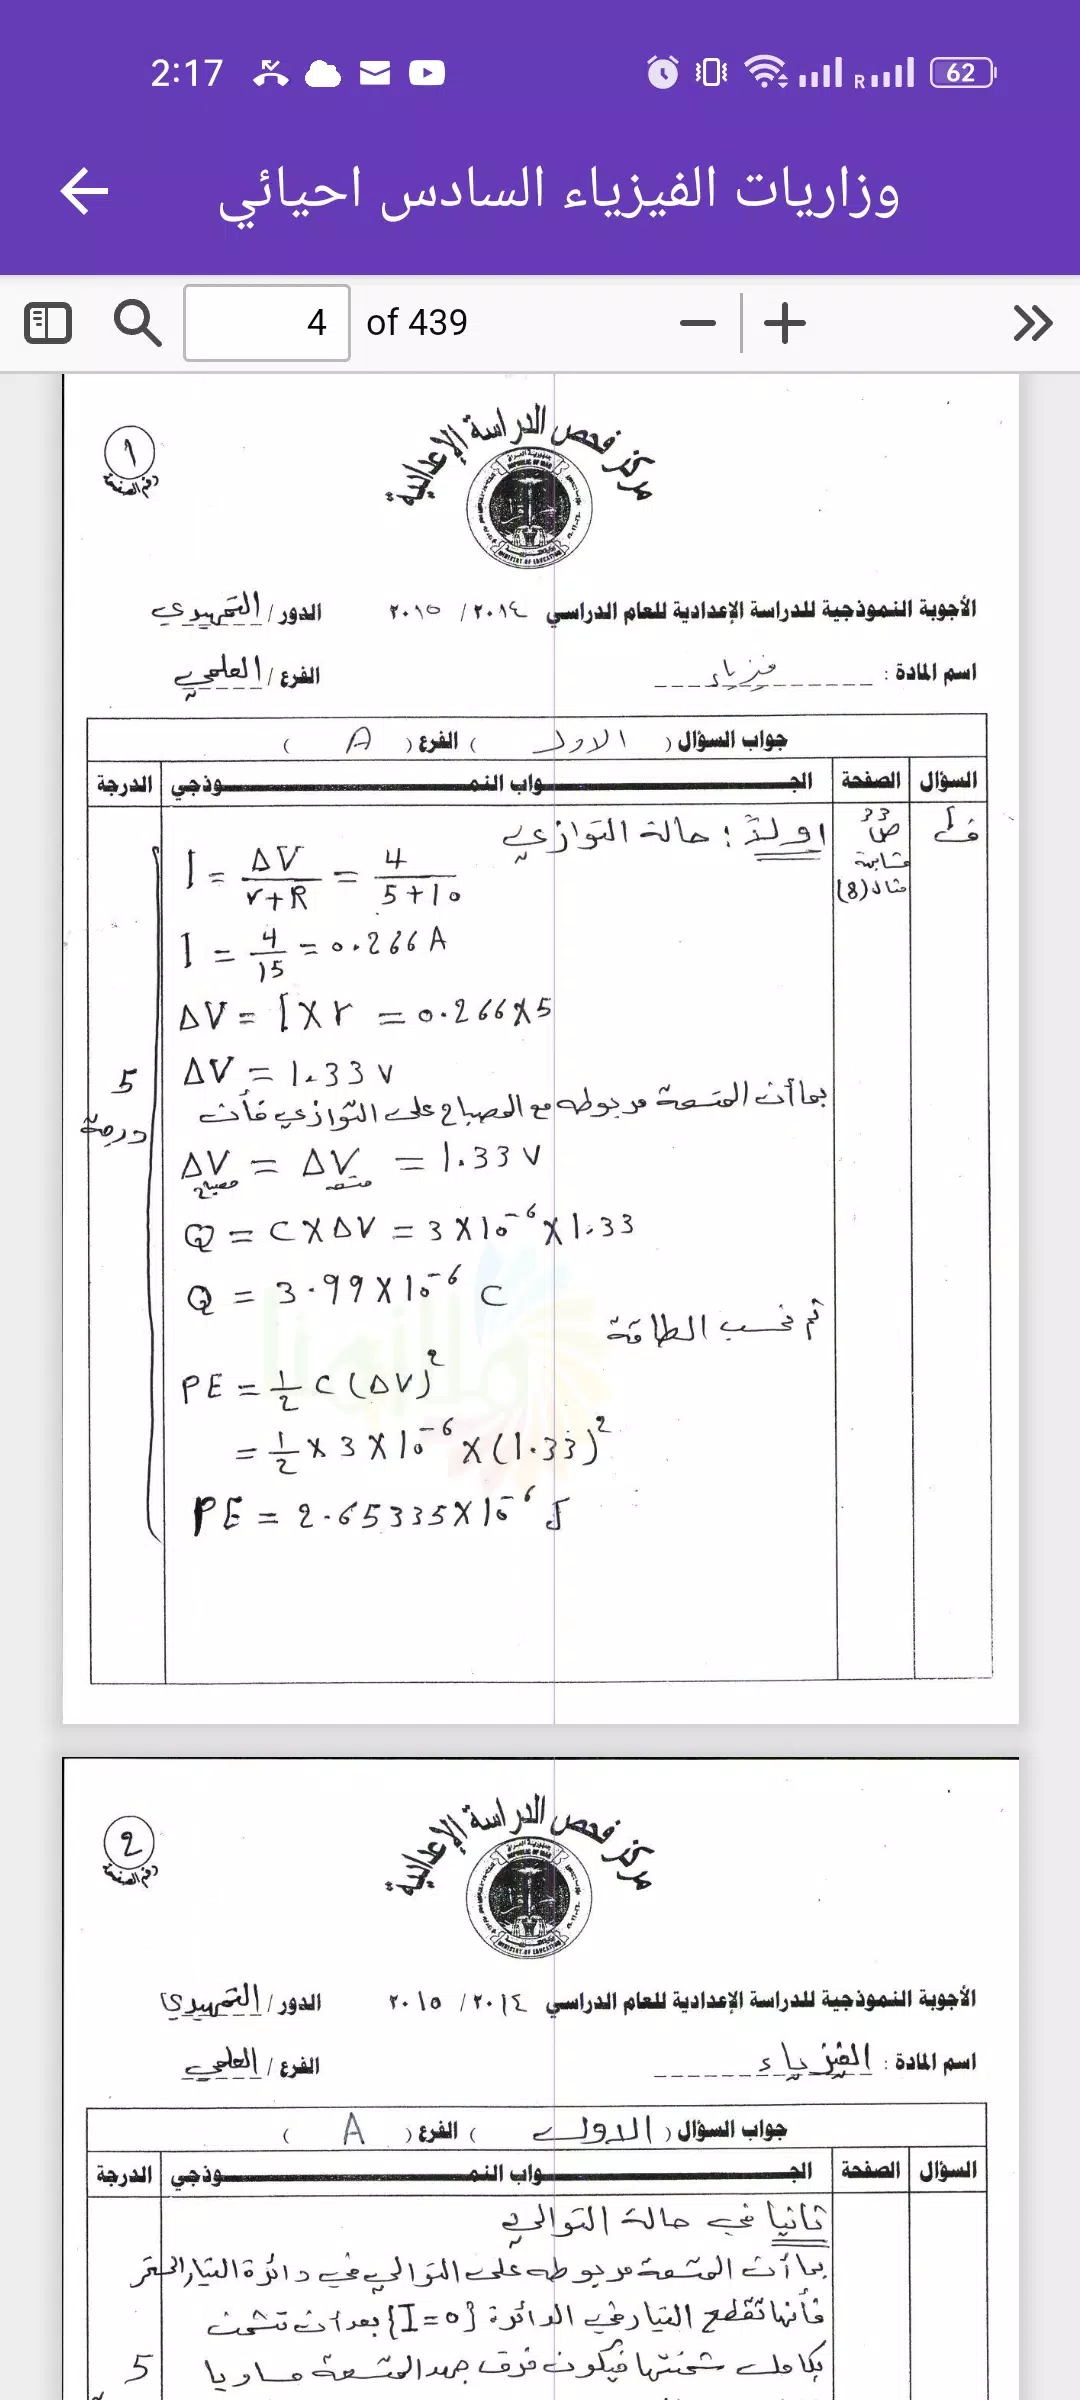 2:17
62
وزاريات الفيزياء السادس احيائي
4 of 439
مركز فحص الدراسة الإعدادية
١
رقم الصفحة
الأجوبة النموذجية للدراسة الإعدادية للعام الدراسي ٢٠١٤ / ٢٠١٥ الدور / التمهيدي
اسم المادة : فيزياء الفرع / العلمي
جواب السؤال ( الاول ) الفرع ( A )
السؤال الصفحة الجـــواب النمـــوذجي الدرجة
ص 33
مشابهة
مثال (8)
اولاً : حالة التوازي
I = ΔV / r+R = 4 / 5+10
I = 4/15 = 0.266 A
ΔV = I X r = 0.266 X 5
ΔV = 1.33 V
5 درجة
بما أن المتسعة مربوطه مع المصباح على التوازي فأن
ΔV مصباح = ΔV متسعه = 1.33 V
Q = C X ΔV = 3 X 10⁻⁶ X 1.33
Q = 3.99 X 10⁻⁶ C
ثم نحسب الطاقة
PE = 1/2 C (ΔV)²
= 1/2 X 3 X 10⁻⁶ X (1.33)²
PE = 2.65335 X 10⁻⁶ J
ملازمنا
مركز فحص الدراسة الإعدادية
2
رقم الصفحة
الأجوبة النموذجية للدراسة الإعدادية للعام الدراسي ٢٠١٤ / ٢٠١٥ الدور / التمهيدي
اسم المادة : الفيزياء الفرع / العلمي
جواب السؤال ( الاول ) الفرع ( A )
السؤال الصفحة الجـــواب النمـــوذجي الدرجة
ثانيا في حالة التوالي
بما أن المتسعة مربوطه على التوالي في دائرة التيار المستمر
فأنها تقطع التيار في الدائرة {I=0} بعد ان تشحن
بكامل شحنتها فيكون فرق جهد المتسعة مساويا
5